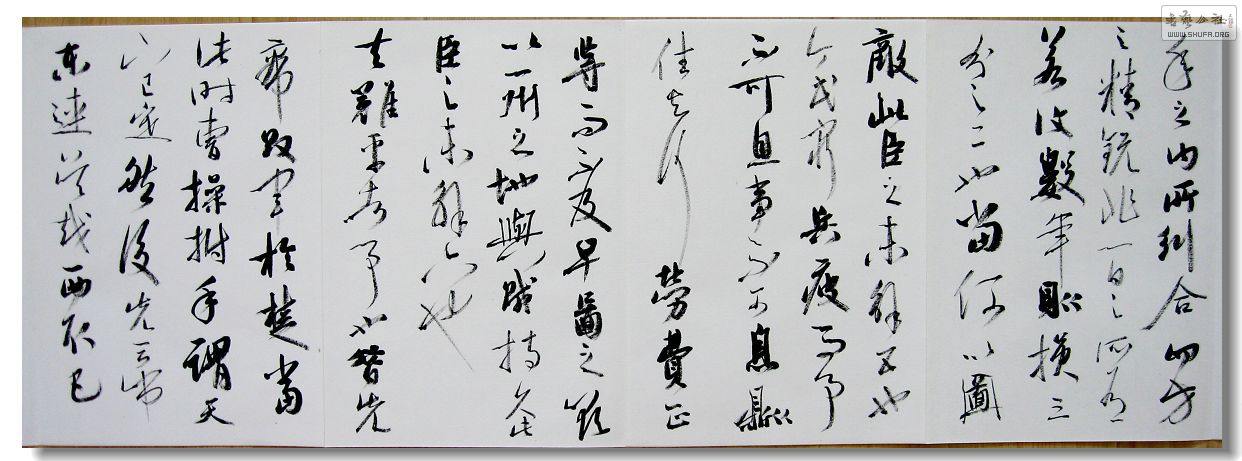 書藝公社
WWW.SHUFA.ORG
年之內所糾合四方
之精銳非一州之所有
若復數年則損三
分之二也當何以圖
敵此臣之未解五也
今民窮兵疲而事
不可息事不可息則
住與行勞費正
等而不及早圖之欲
以一州之地與賊持久此
臣之未解六也
夫難平者事也昔先
帝敗軍於楚當
此時曹操拊手謂天
下已定然後先帝
東連吳越西取巴